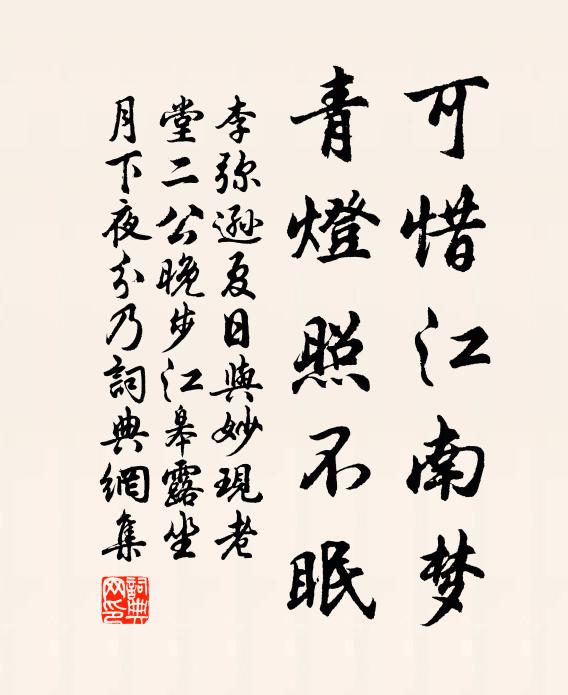 可惜江南梦
青燈照不眠
李弥遜夏日與妙現老
堂二公晚步江皋露坐
月下夜分乃詞典網集
詞典网印